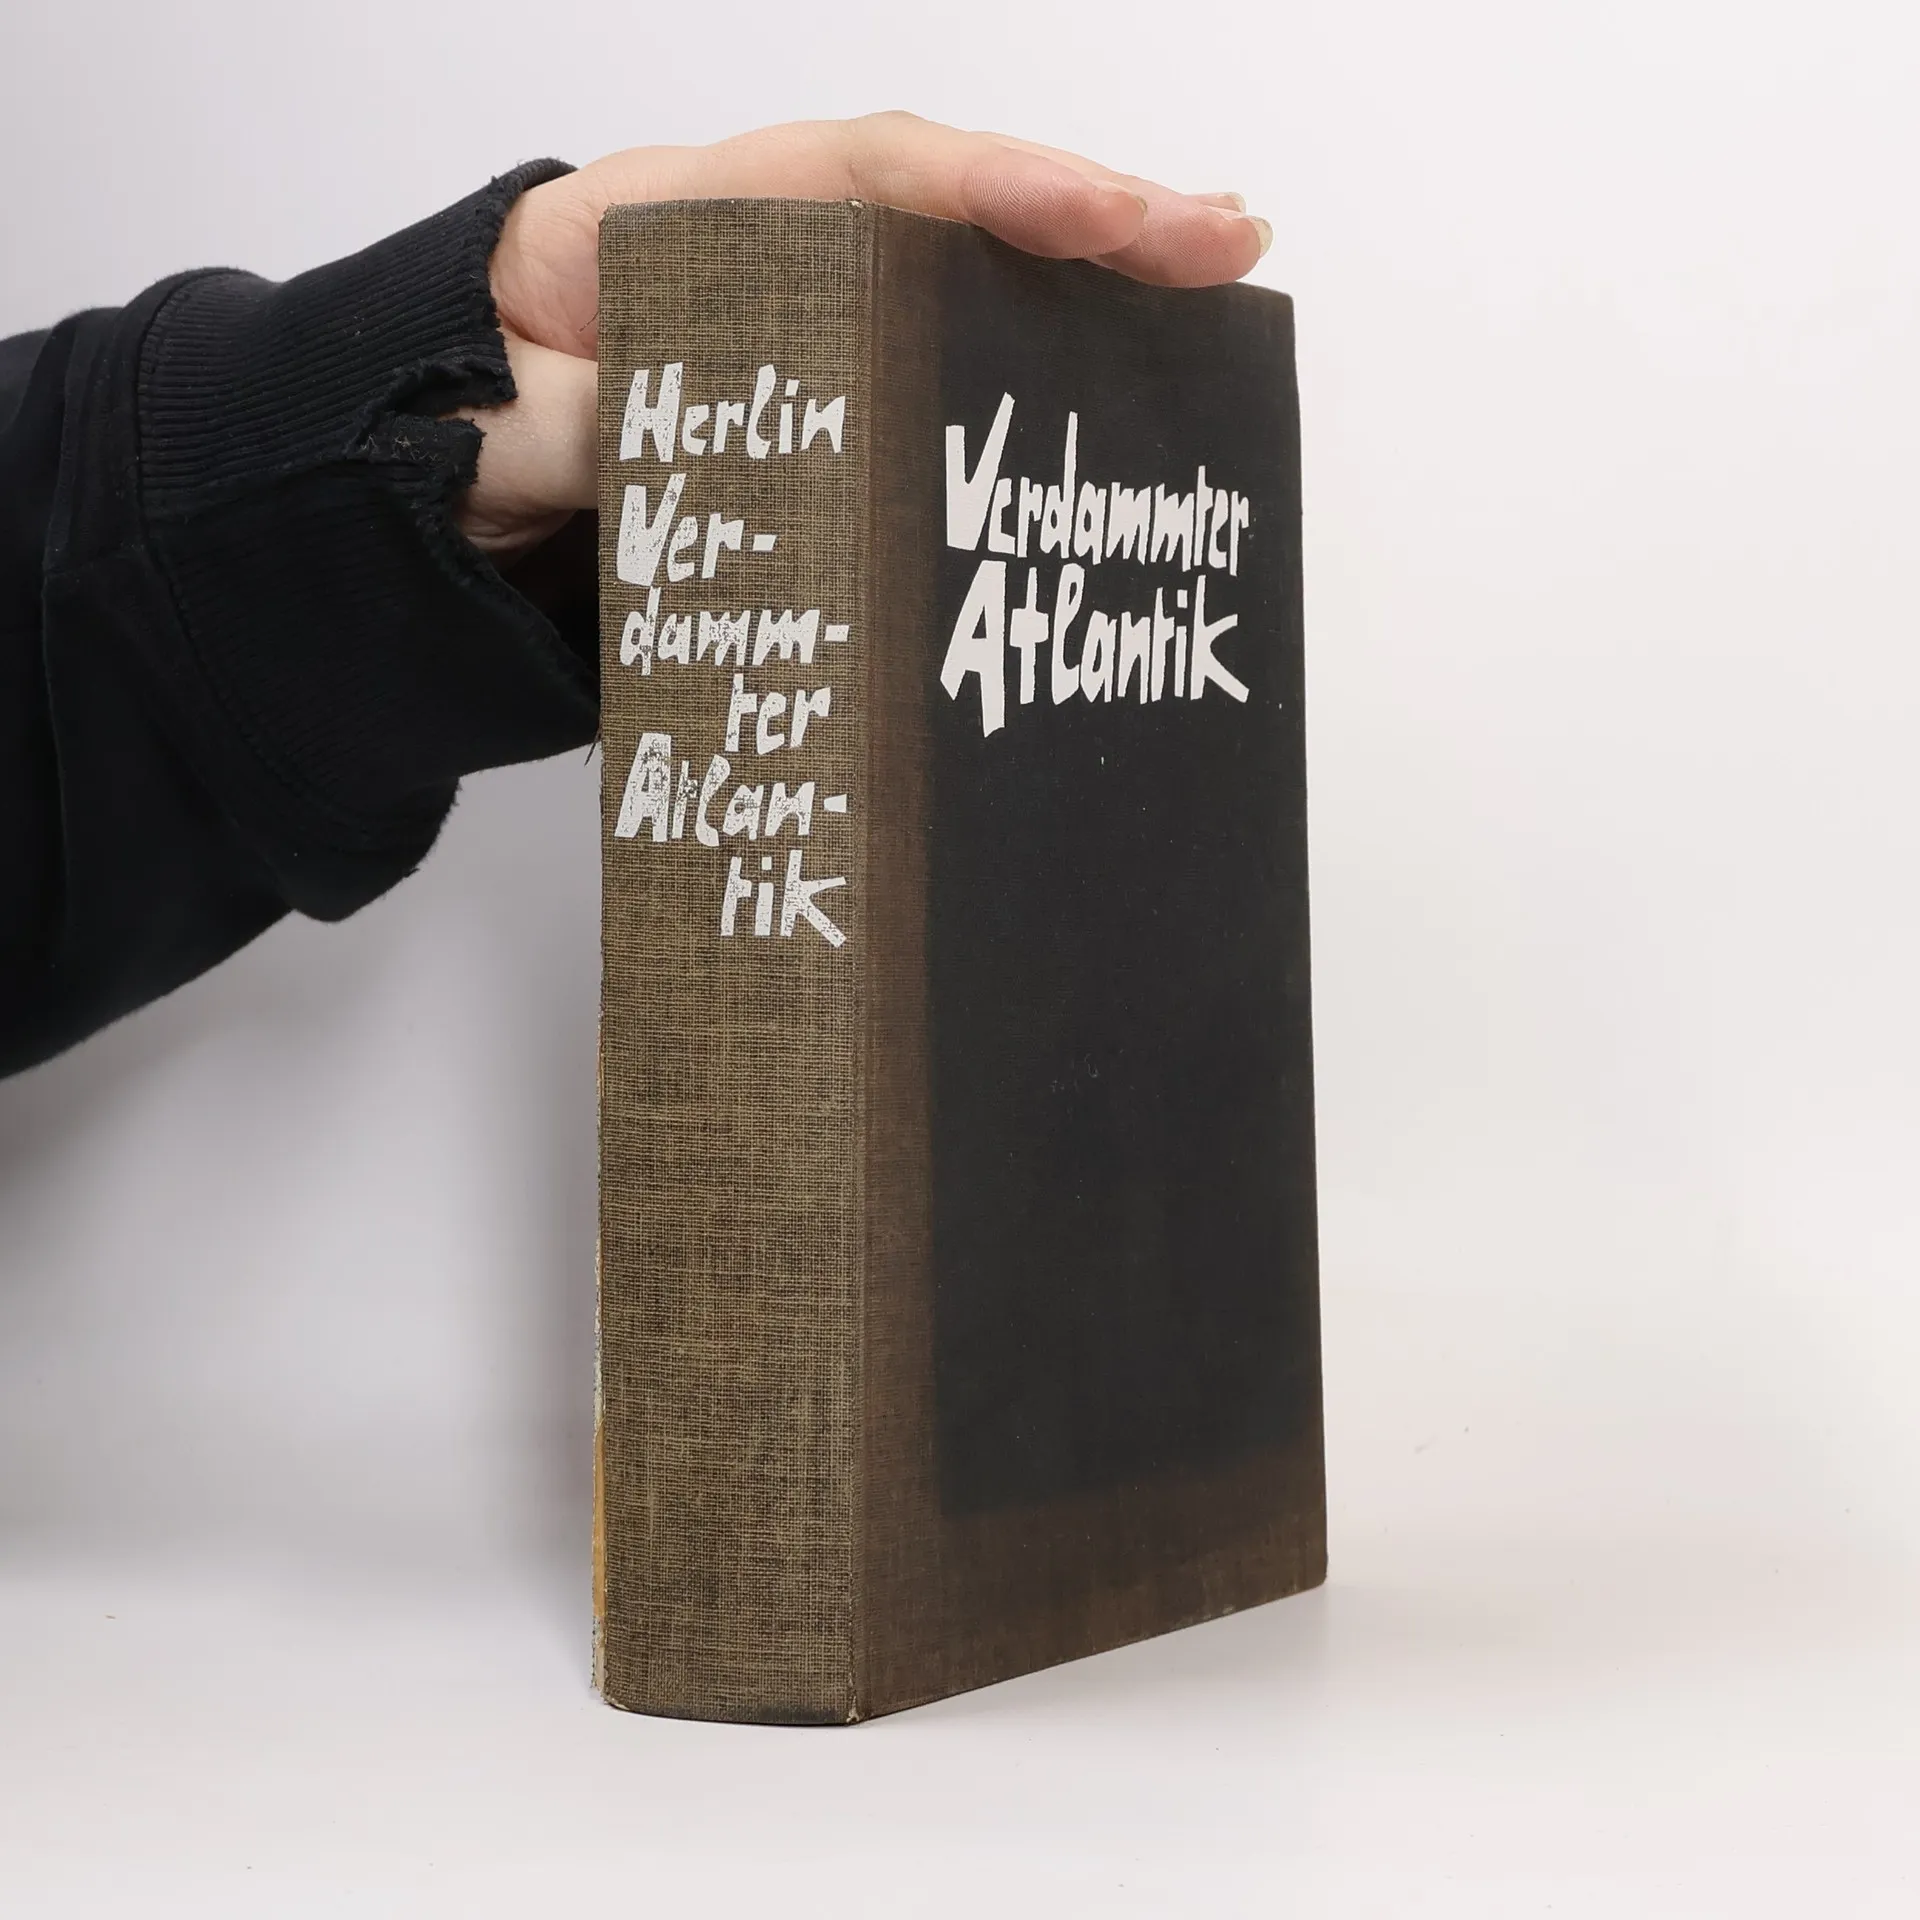 Herlin
Ver-
damm-
ter
Atlan-
tik
Verdammter
Atlantik